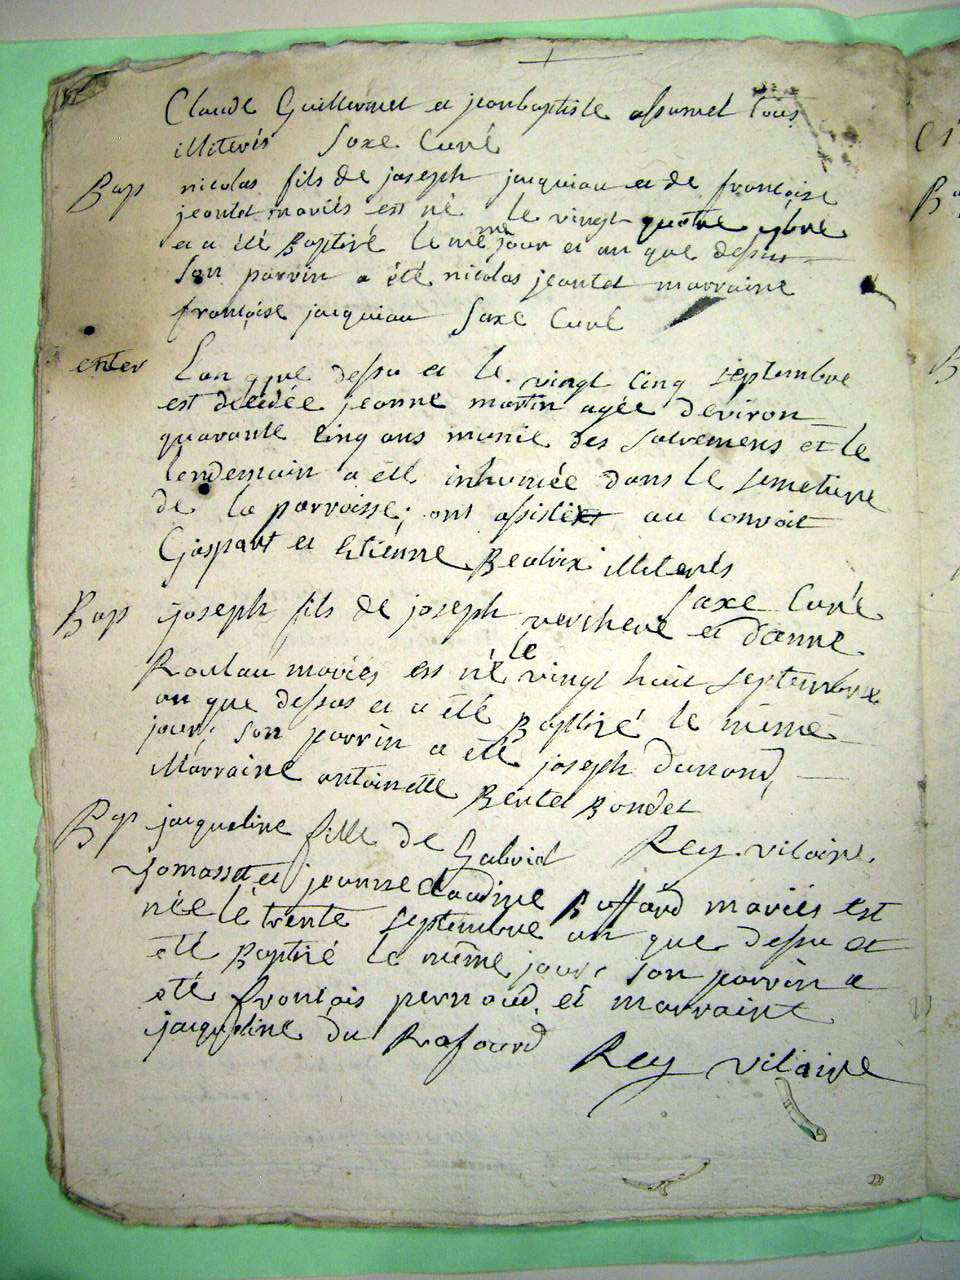 Claude Guillermet et jeanbaptiste assumel tous
illiterés Saxe Curé
Bap nicolas fils de joseph jacquiau et de francoise
jeantet mariés est né le vingt quatre 7bre
et a été Baptisé le meme jour et an que dessus
Son parrin a été nicolas jeantet marraine
francoise jacquiau Saxe Curé
enter L'an que dessu et le vingt cinq septembre
est décédée jeanne martin agée d'eviron
quarante cinq ans munie des Sacremens et le
lendemain a été inhumée dans le semetiere
de la parroisse; ont assisté au convoit
Gaspart et Etiénne Beatrix illiterés
Saxe Curé
Bap joseph fils de joseph verchere et d'anne
Roulau mariés est né le vingt huit septembre
an que dessus et a été Baptisé le même
jour, son parrin a été joseph dunond,
Marraine antoinette Bertet Bondet
Rey vicaire.
Bap jacqueline fille de Gabriel
et jeanne claudine Buffard mariés est
née le trente septembre an que dessu et
été Baptisé le même jour, son parrin a
été francois pernoud, et marraine
jacqueline du Rafourd
Rey vicaire